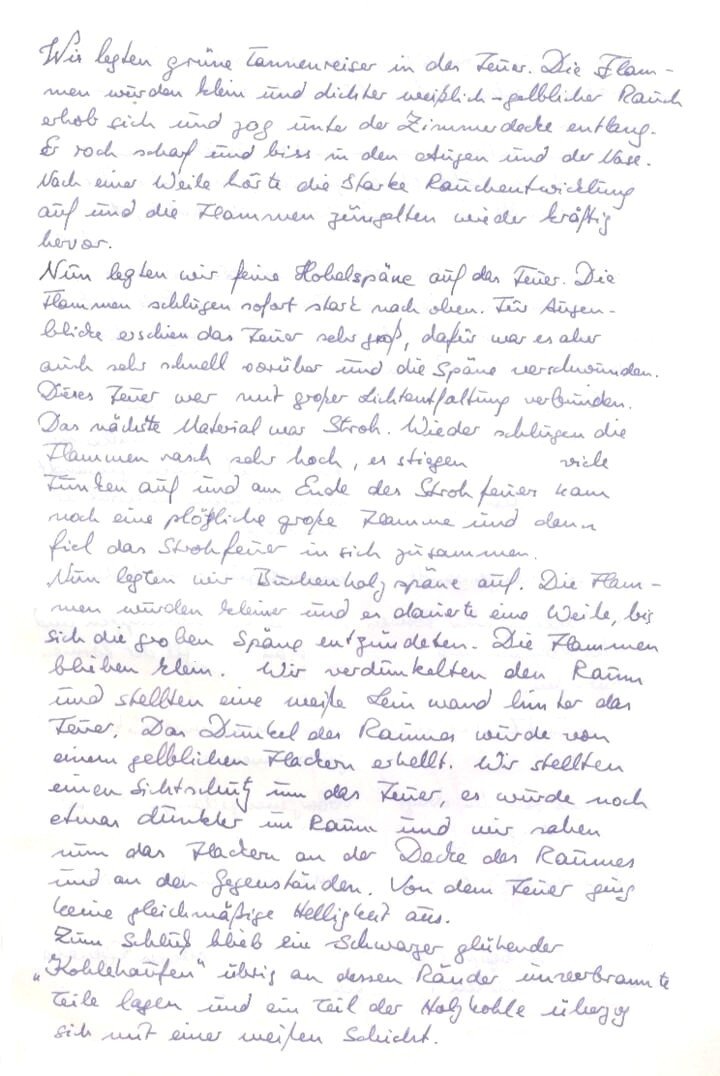 Wir legten grüne Tannenreiser in das Feuer. Die Flam-
men wurden klein und dichter weißlich-gelblicher Rauch
erhob sich und zog unter der Zimmerdecke entlang.
Er roch scharf und biss in den Augen und der Nase.
Nach einer Weile hörte die starke Rauchentwicklung
auf und die Flammen züngelten wieder kräftig
hervor.
Nun legten wir feine Hobelspäne auf das Feuer. Die
Flammen schlugen sofort stark nach oben. Für Augen-
blicke erschien das Feuer sehr groß, dafür war es aber
auch sehr schnell vorüber und die Späne verschwunden.
Dieses Feuer war mit großer Lichtentfaltung verbunden.
Das nächste Material war Stroh. Wieder schlugen die
Flammen rasch sehr hoch, es stiegen viele
Funken auf und am Ende des Strohfeuers kam
noch eine plötzliche große Flamme und dann
fiel das Strohfeuer in sich zusammen.
Nun legten wir Buchenholzspäne auf. Die Flam-
men wurden kleiner und es dauerte eine Weile, bis
sich die groben Späne entzündeten. Die Flammen
blieben klein. Wir verdunkelten den Raum
und stellten eine weiße Leinwand hinter das
Feuer. Das Dunkel des Raumes wurde von
einem gelblichen Flackern erhellt. Wir stellten
einen Sichtschutz um das Feuer, es wurde noch
etwas dunkler im Raum und wir sahen
nun das Flackern an der Decke des Raumes
und an den Gegenständen. Von dem Feuer ging
keine gleichmäßige Helligkeit aus.
Zum Schluß blieb ein schwarzer glühender
„Kohlehaufen“ übrig an dessen Ränder unverbrannte
Teile lagen und ein Teil der Holzkohle überzog
sich mit einer weißen Schicht.